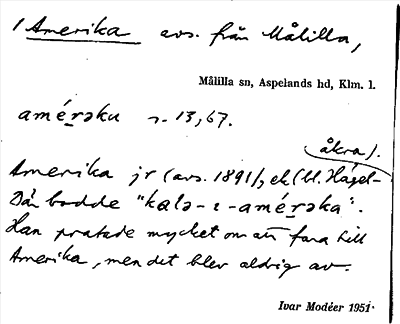 1 Amerika avs. från Målilla,
Målilla sn, Aspelands hd, Klm. l.
améṛəku s. 13,67.
åkra).
Amerika jr (avs. 1891), ek (bl. Hägel-
Där bodde "kalə-ɩ-améṛəka".
Han pratade mycket om att fara till
Amerika, men det blev aldrig av.
Ivar Modéer 1951.